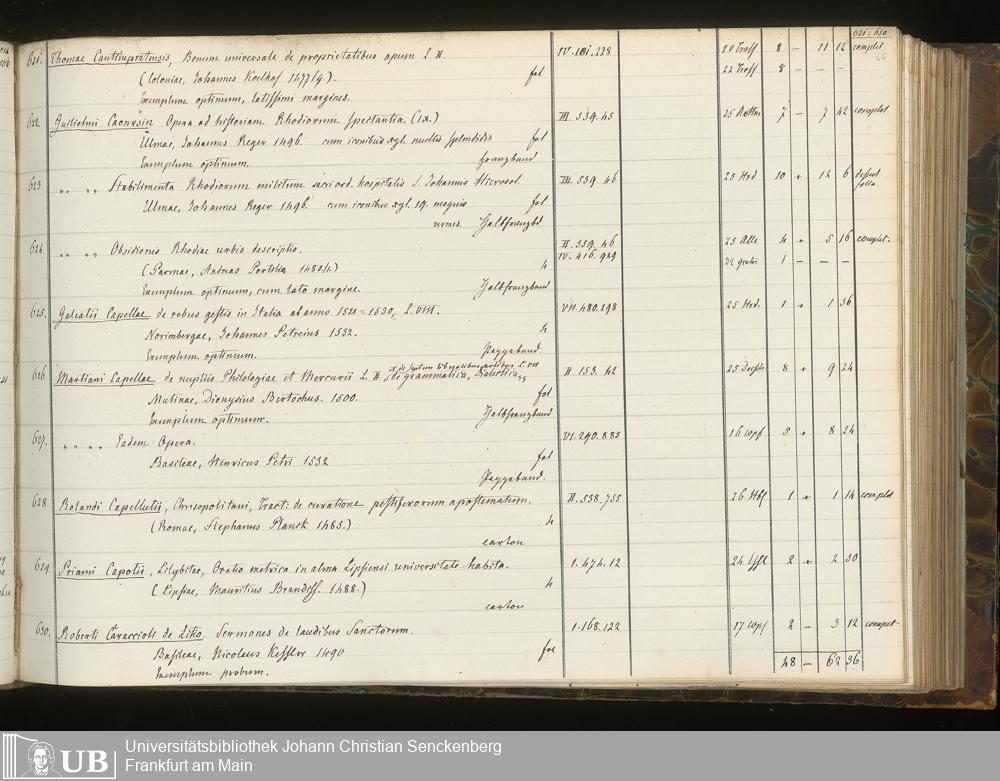 621-630
621. Thomae Cantimpratensis, Bonum universale de proprietatibus apum L. II. IV. 101. 228 20 Troff 8 - 11 12 complet
(Coloniae, Johannes Koelhof 1477/9.) fol 22 Troff 8 - - -
Exemplum optimum, latissimi margines.
622. Guilielmi Caoursin Opera ad historiam Rhodiorum spectantia (IX.) III. 539. 45 25 7 - 7 42 complet
Ulmae, Johannes Reger 1496. cum iconibus xyl. multis splendidis fol
Exemplum optimum. Franzband
623 " " " " Stabilimenta Rhodiorum militum sacri ord. hospitalis S. Johannis Hierosol. III. 539. 46 25 Hrd 10 + 12 6 desunt folia.
Ulmae, Johannes Reger 1496. cum iconibus xyl. 19. magnis fol
Halbfranzbd.
624. " " " " Obsidionis Rhodiae urbis descriptio. II. 359. 46 25 Alle 4 + 5 16 complet.
(Parmae, Andreas Portilia 1480/1.) 4 IV. 416. 929 22 1 - - -
Exemplum optimum, cum lato margine. Halbfranzband
625. Galeatii Capellae de rebus gestis in Italia ab anno 1521=1530, L. VIII. VII. 480. 298 25 Hrd. 1 + 1 36
Norimbergae, Johannes Petreius 1532. 4
Exemplum optimum. Pappband.
626 Martiani Capellae de nuptiis Philologiae et Mercurii L. II et de septem liberalibus artibus L. VII (de grammatica, dialectica, II. 153. 42 25 8 + 9 24
Mutinae, Dionysius Bertochus. 1500. fol
Exemplum optimum. Halbfranzband
627. " " " " Eadem Opera. VI. 290. 885 16 3 + 8 24
Basileae, Henricus Petri 1532 fol
Pappband.
628. Rolandi Capelluti, Chrisopolitani, Tract: de curatione pestiferorum apostematum. II. 538. 755 26 1 + 1 14 complet
(Romae, Stephanus Planck 1485.) 4
carton
629. Priami Capotis, Lilybitae, Oratio metrica in alma Lipsiensi universitate habita. I. 474. 12 24 2 + 2 30
(Lipsiae, Mauritius Brandiss. 1488.) 4
carton
630. Roberti Caraccioli de Litio. Sermones de laudibus Sanctorum. I. 168. 122 17 2 - 3 12 complet
Basileae, Nicolaus Kessler 1490 fol
Exemplum probum. 48 - 62 36
UB
Universitätsbibliothek Johann Christian Senckenberg
Frankfurt am Main